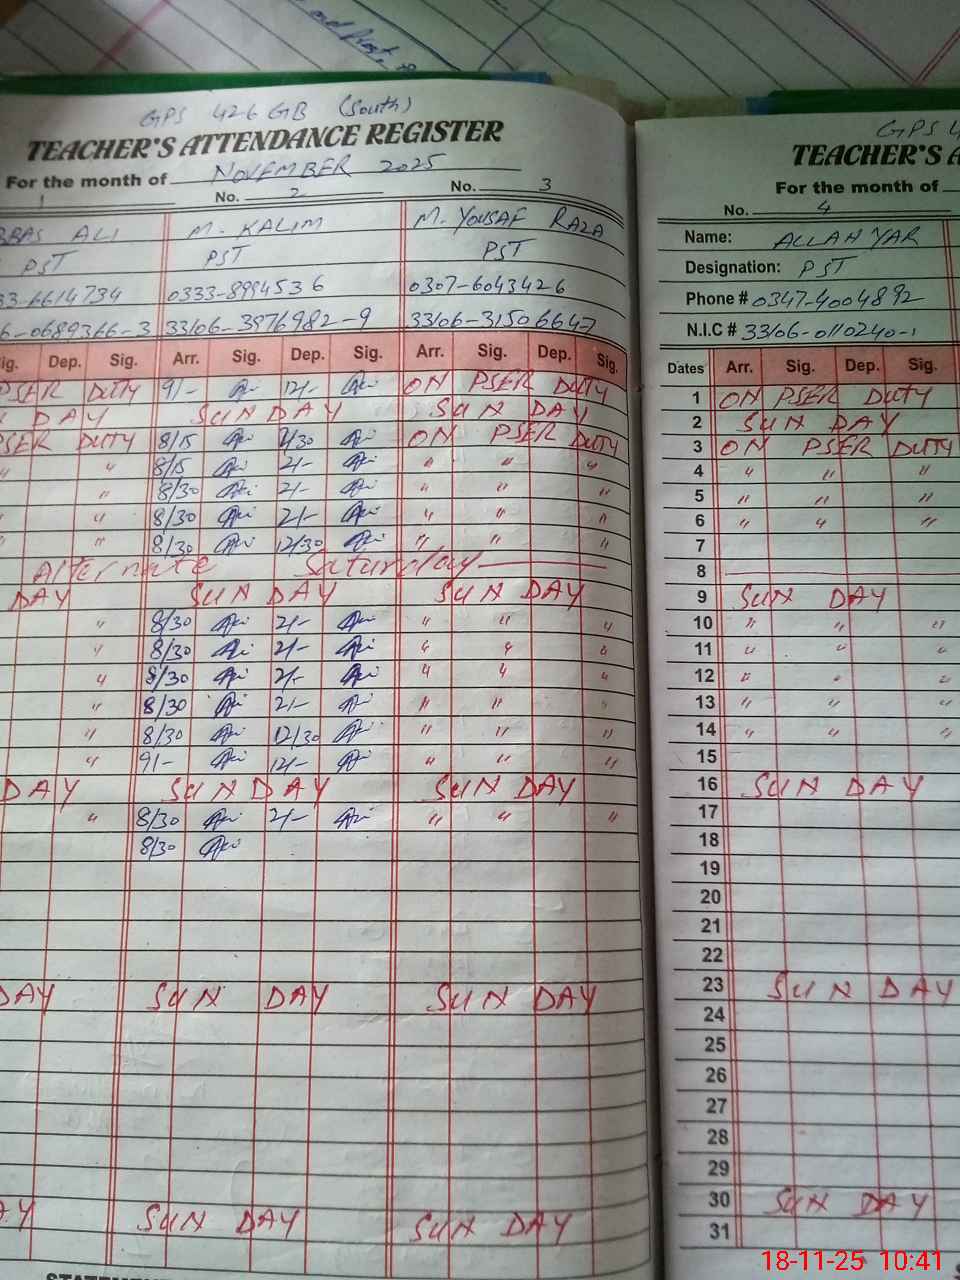 GPS 426 GB (South)
TEACHER'S ATTENDANCE REGISTER
For the month of NOVEMBER 2025
1 No. 2 No. 3
BBAS ALI M. KALIM M. YOUSAF RAZA
PST PST PST
33-6614734 0333-8994536 0307-6043426
6-0689366-3 33106-3976982-9 33106-3150664-7
ig. Dep. Sig. Arr. Sig. Dep. Sig. Arr. Sig. Dep. Sig.
PSER DUTY 9/- 12/- ON PSER DUTY
DAY SUN DAY SUN DAY
PSER DUTY 8/15 2/30 ON PSER DUTY
" " 8/15 2/- " " "
" 8/30 2/- " " "
" " 8/30 2/- " " "
" " 8/30 12/30 " " "
Alternate Saturday
DAY SUN DAY SUN DAY
" 8/30 2/- " " "
" 8/30 2/- " " "
" 8/30 2/- " " "
" 8/30 2/- " " "
" 8/30 12/30 " " "
" 9/- 12/- " " "
DAY SUN DAY SUN DAY
" 8/30 2/- " " "
8/30
DAY SUN DAY SUN DAY
AY SUN DAY SUN DAY
GPS 4
TEACHER'S A
For the month of
No. 4
Name: ALLAH YAR
Designation: PST
Phone # 0347-4004892
N.I.C # 33106-0110240-1
Dates Arr. Sig. Dep. Sig.
1 ON PSER DUTY
2 SUN DAY
3 ON PSER DUTY
4 " " "
5 " " "
6 " " "
7
8
9 SUN DAY
10 " " "
11 " " "
12 " " "
13 " " "
14 " " "
15
16 SUN DAY
17
18
19
20
21
22
23 SUN DAY
24
25
26
27
28
29
30 SUN DAY
31
18-11-25 10:41